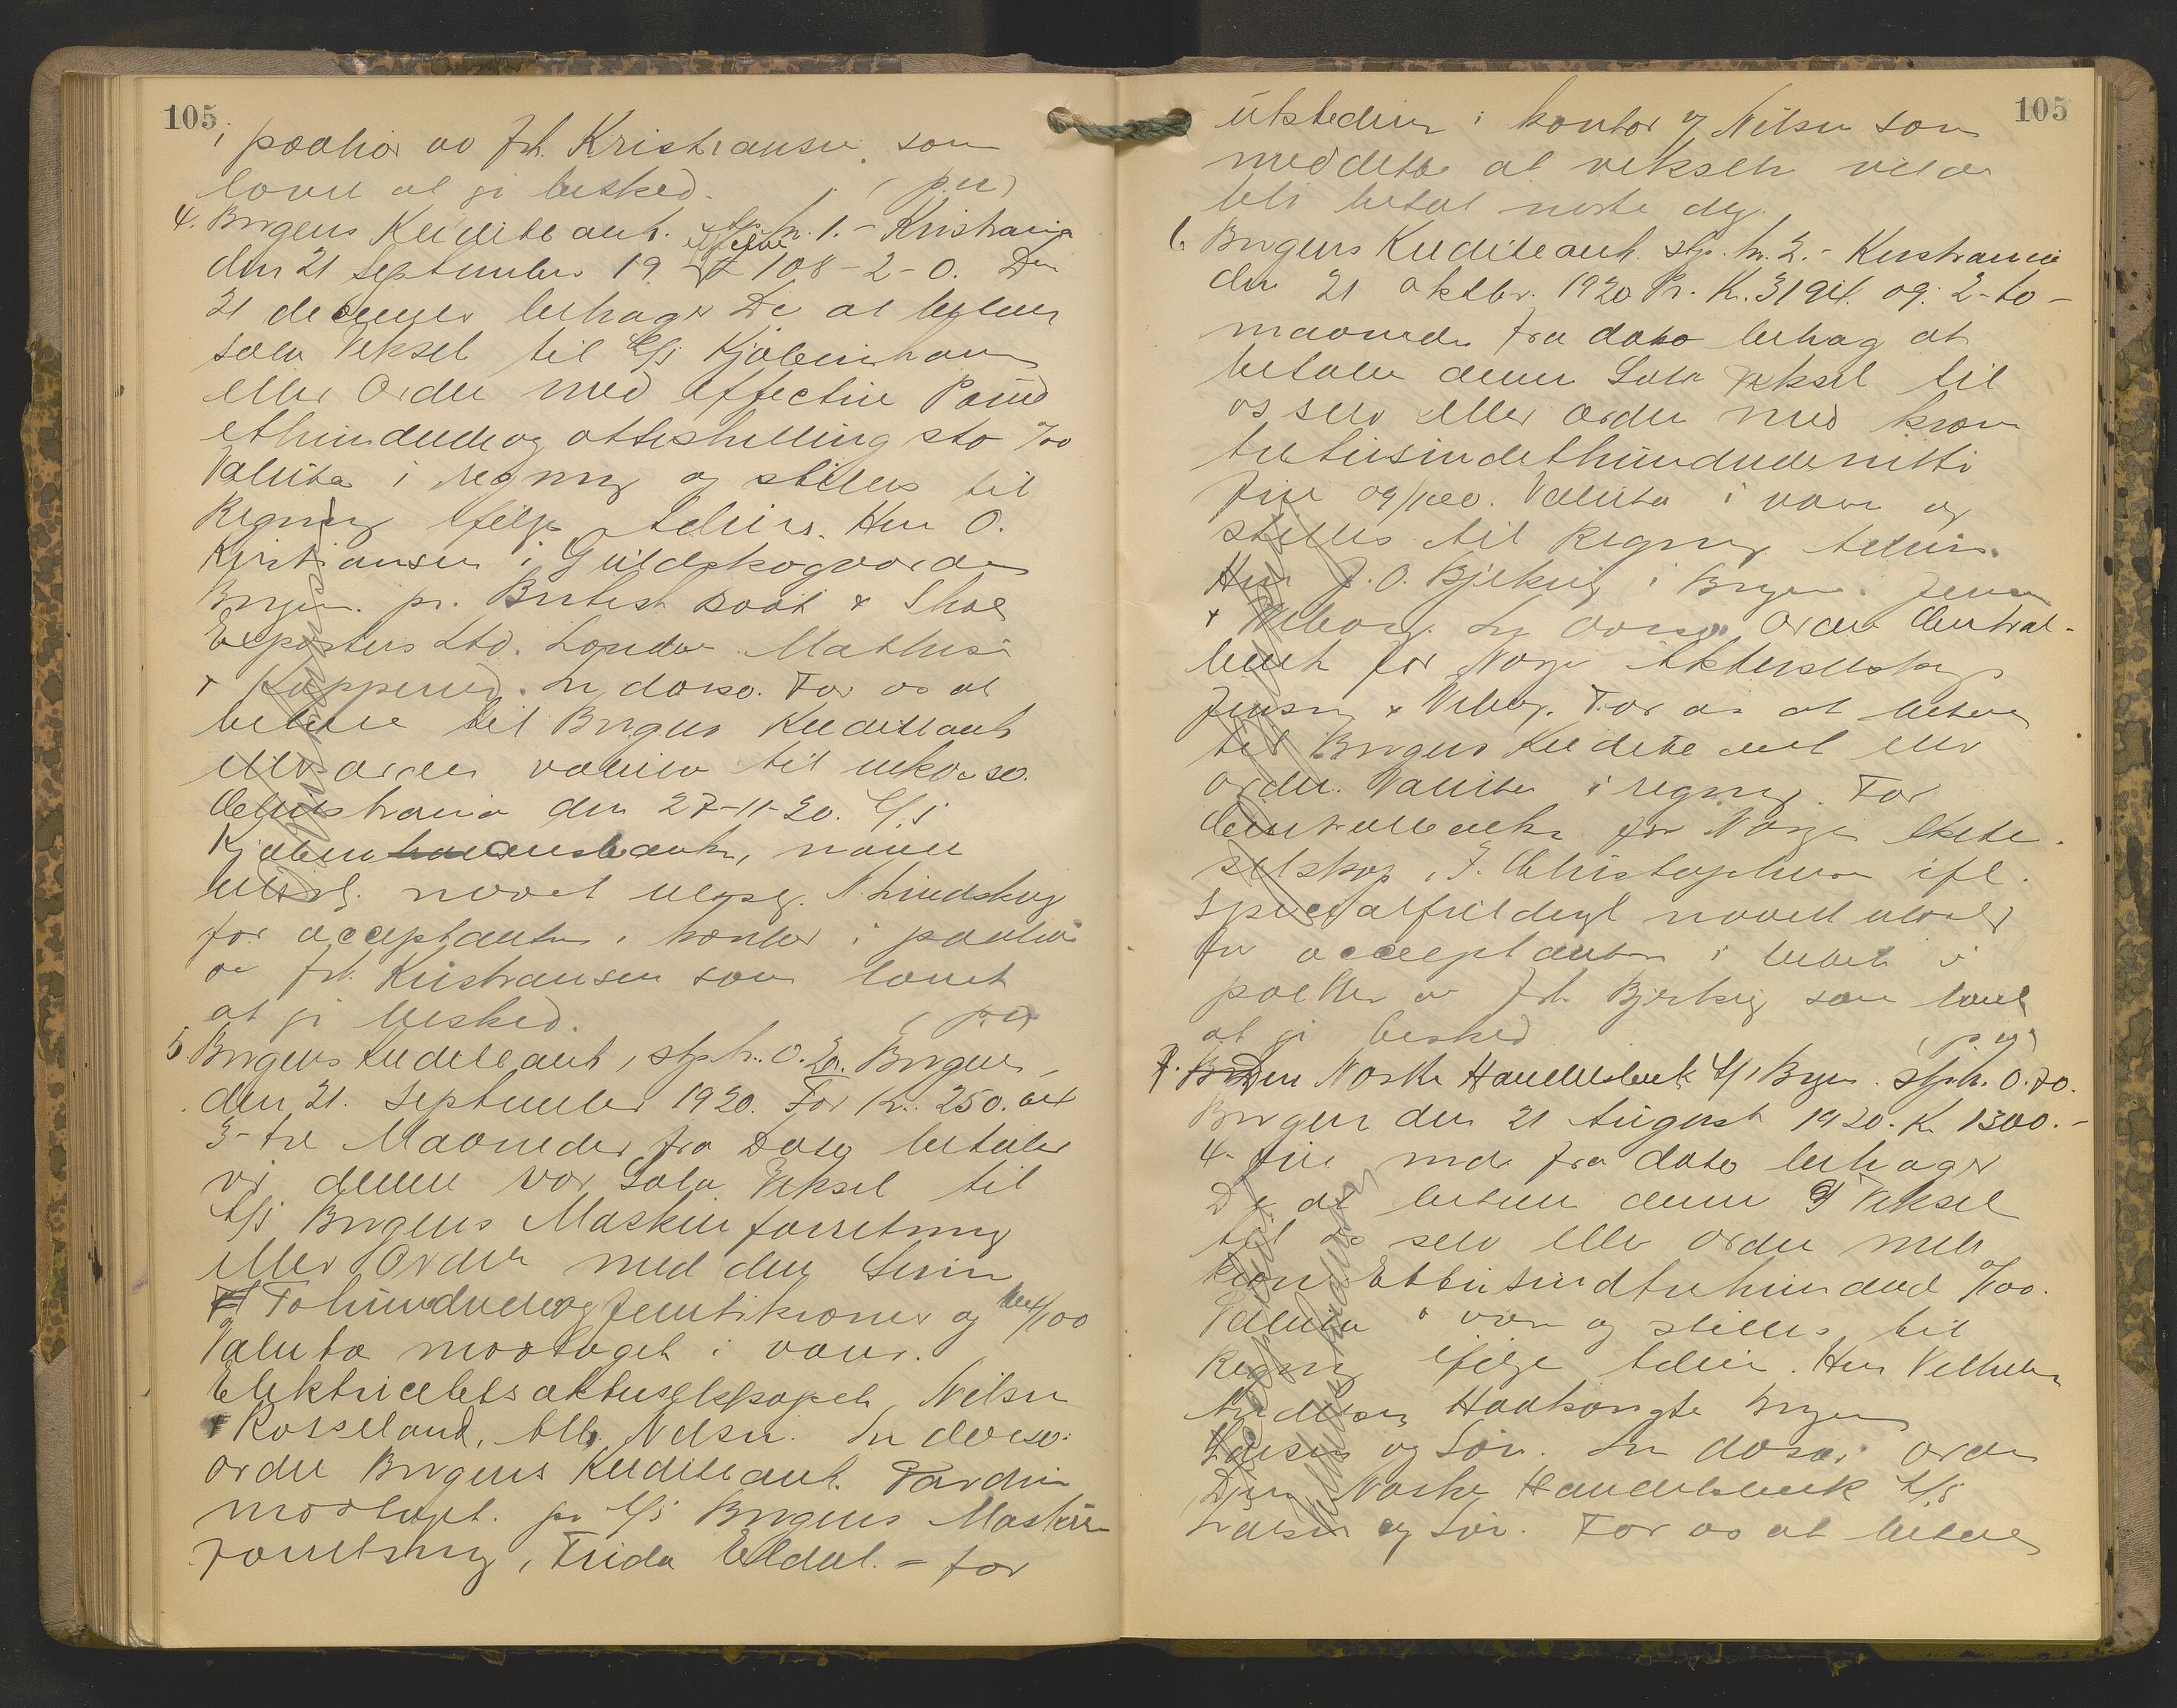 105
i paahør av frk. Kristiansen, som
lovet at gi besked. (p.u)
4. Bergens Kreditbank. stp. kr. 1.- Kristiania
den 21 september 19 - £ 108-2-0. Den
21 december behager De at betale
sola Veksel til A/S Kjøbenhavn
eller Ordre med effective Pund
ethundredeogotteshilling sto 0/00
Valuta i regning og stilles til
Regning ifølge advis. Herr O.
Kristiansen i Guldskogaarden
Bergen. pr. British Boot & Shoe
Exporters Ltd. London. Mathisen
& In dorso. For os at
betale til Bergens Kreditbank
eller ordre valuta til inkasso.
Christiania den 27-11-20. A/S
Kjøbenhavensbank, navn
utveisl. navn N. Lindskog
for acceptanten i kontor i paahør
av frk. Kristiansen som lovet
at gi besked. (p.u)
5. Bergens Kreditbank, stp. kr. 0.20. Bergen,
den 21. September 1920. For Kr. 250.
3-tre Maaneder fra Dato betaler
vi denne vor Sola Veksel til
A/S Bergens Maskinforretning
eller Ordre med den Sum
Tohundredeogfemtikroner og /100
Valuta modtaget i varer.
Elektricitetsaktieselskapet Nilsen
& Rosseland, Alb. Nilsen. In dorso:
ordre Bergens Kreditbank. Værdien
modtaget. pr A/S Bergens Maskin
forretning, Frida Eldal. - for
105
utstederen i kontor og Nilsen som
meddelte at vekselen vilde
bli betal neste dag.
6. Bergens Kreditbank. stp. kr. 2.- Kristiania
den 21 oktbr. 1920 Pr. Kr. 3194. 09. 2-to-
maaneder fra dato behag at
betale denne Sola Veksel til
os selv eller ordre med kroner
tretusindethundredenitti
fire 09/100. Valuta i varer og
stilles til Regning advis.
Herr J. O. Bjerkvig i Bergen. Jensen
& Viborg. In dorso Ordre Central-
bank for Norge Aktieselskap
Jensen & Viborg. For os at betale
til Bergens Kreditbank eller
ordre. Valuta i regning. For
Centralbanken for Norge Aktie-
selskap, J. Christophersen ifl.
specialfuldmagt navn
for acceptanten i butik i
paahør av frk. Bjerkvig som lovet
at gi besked (p.u)
7. Den Norske Handelsbank A/S Bergen. stp. kr. 0.70.
Bergen den 21 August 1920. Kr. 1300.-
4-fire mdr fra dato behager
De at betale denne Veksel
til os selv eller ordre med
kroner Ettusindtrehundred 0/100.
Valuta i varer og stilles til
Regning ifølge advis. Herr Vilhelm
Andersen Haakonsgte Bergen
Larsen og Søn. In dorso: ordre
Den Norske Handelsbank A/S
Larsen og Søn. For os at betale